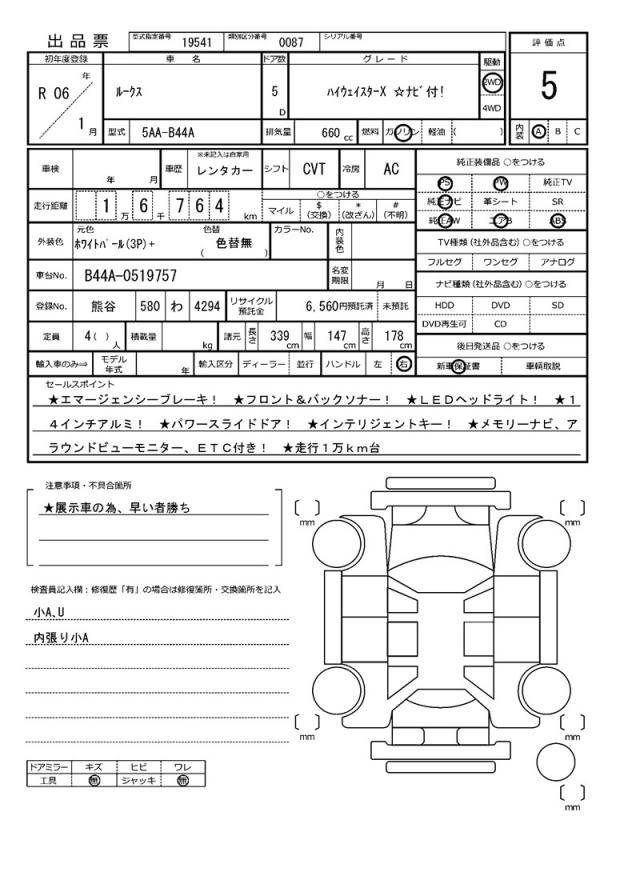 出品票 型式指定番号 19541 類別区分番号 0087 シリアル番号
評価点
5
内装 A B C
初年度登録 車名 ドア数 グレード 駆動
R 06 年 1 月
ルークス
5 D
ハイウェイスターX ☆ナビ付!
2WD
4WD
型式 5AA-B44A 排気量 660 cc 燃料 ガソリン 軽油 ( )
車検 年 月 車歴 ※未記入は自家用 レンタカー シフト CVT 冷房 AC
走行距離 1 万 6 千 7 6 4 km
○をつける
マイル $(交換) *(改ざん) #(不明)
外装色 元色 ホワイトパール(3P)+ 色替 ( 色替無 ) カラーNo. 内装色
車台No. B44A-0519757 名変期限 月 日
登録No. 熊谷 580 わ 4294 リサイクル預託金 6,560円預託済 未預託
定員 4( )人 積載量 kg 諸元 長さ 339 cm 幅 147 cm 高さ 178 cm
輸入車のみ⇒ モデル年式 年 輸入区分 ディーラー 並行 ハンドル 左 右
純正装備品 ○をつける
PS PW 純正TV
純正ナビ 革シート SR
純正AW エアB ABS
TV種類 (社外品含む) ○をつける
フルセグ ワンセグ アナログ
ナビ種類 (社外品含む) ○をつける
HDD DVD SD
DVD再生可 CD
後日発送品 ○をつける
新車保証書 車輌取説
セールスポイント
★エマージェンシーブレーキ! ★フロント&バックソナー! ★LEDヘッドライト! ★1
4インチアルミ! ★パワースライドドア! ★インテリジェントキー! ★メモリーナビ、ア
ラウンドビューモニター、ETC付き! ★走行1万km台
注意事項・不具合箇所
★展示車の為、早い者勝ち
検査員記入欄:修復歴「有」の場合は修復箇所・交換箇所を記入
小A,U
内張り小A
ドアミラー キズ ヒビ ワレ
工具 無 ジャッキ 無
[ ] mm
[ ] mm
[ ] mm
[ ] mm
[ ] mm